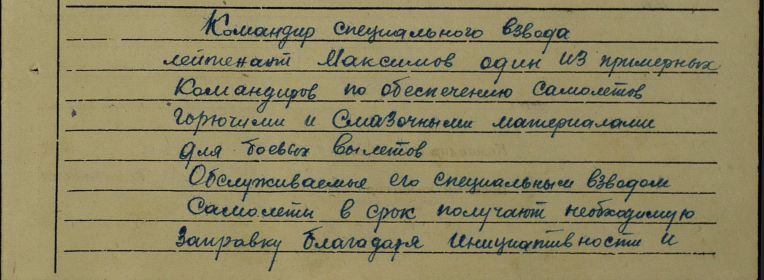 Командир специального взвода
лейтенант Максимов один из примерных
Командиров по обеспечению самолетов
горючими и смазочными материалами
для боевых вылетов
Обслуживаемые его специальным взводом
самолеты в срок получают необходимую
заправку благодаря инициативности и